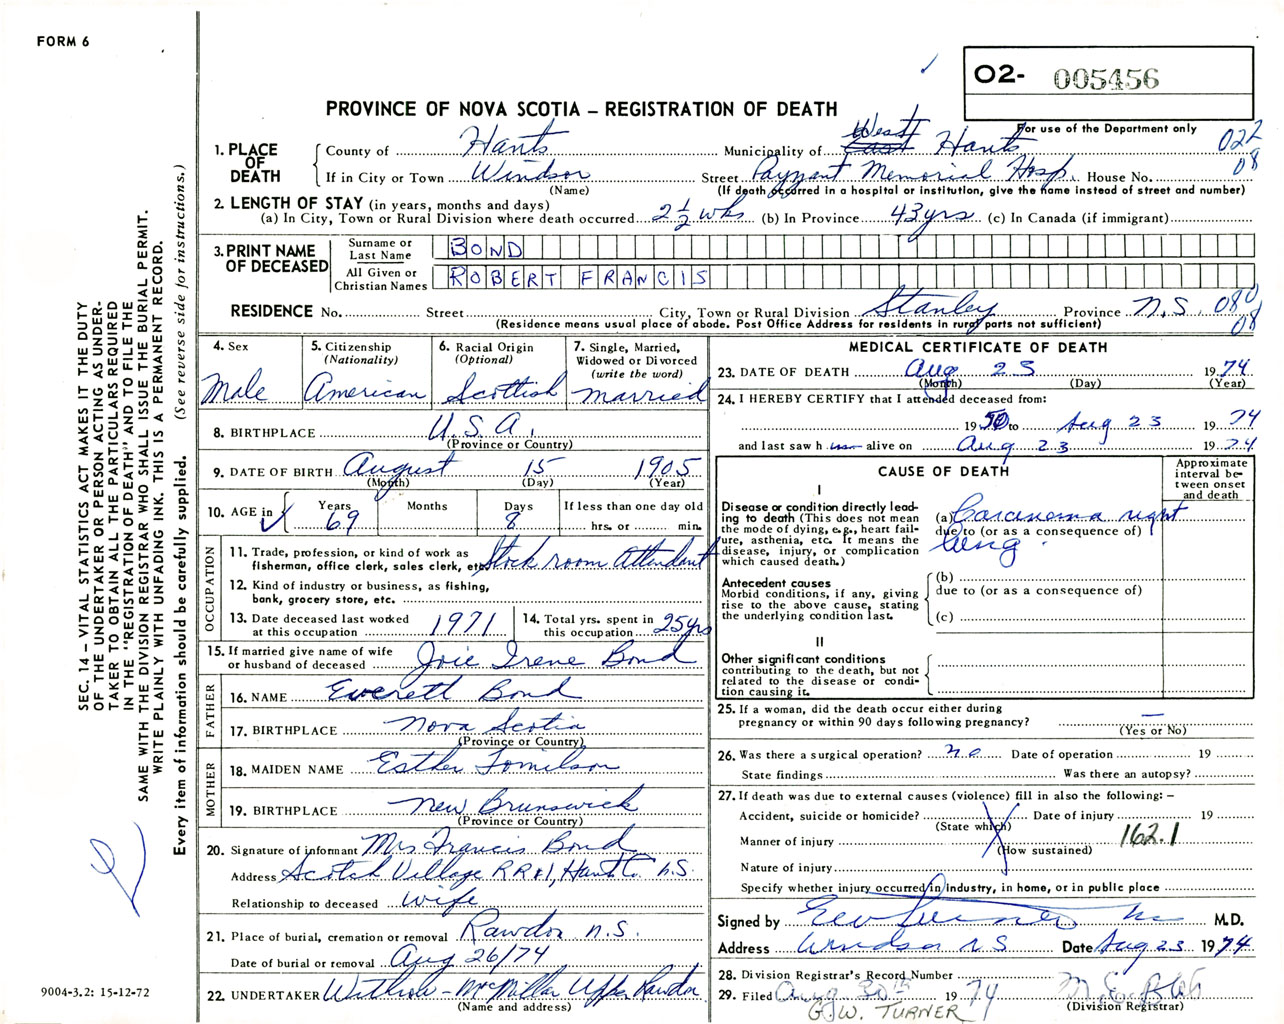 FORM 6
O2- 005456
PROVINCE OF NOVA SCOTIA – REGISTRATION OF DEATH
For use of the Department only
022
08
1. PLACE OF DEATH
County of Hants Municipality of West East Hants
If in City or Town Windsor Street Payzant Memorial Hosp. House No.
(Name) (If death occurred in a hospital or institution, give the name instead of street and number)
2. LENGTH OF STAY (in years, months and days)
(a) In City, Town or Rural Division where death occurred 2 1/2 wks (b) In Province 43 yrs (c) In Canada (if immigrant)
3. PRINT NAME OF DECEASED
Surname or Last Name BOND
All Given or Christian Names ROBERT FRANCIS
RESIDENCE No. Street City, Town or Rural Division Stanley Province N.S. 080
08
(Residence means usual place of abode. Post Office Address for residents in rural parts not sufficient)
4. Sex
Male
5. Citizenship
(Nationality)
American
6. Racial Origin
(Optional)
Scottish
7. Single, Married,
Widowed or Divorced
(write the word)
married
8. BIRTHPLACE U.S.A.
(Province or Country)
9. DATE OF BIRTH August 15 1905
(Month) (Day) (Year)
10. AGE in Years Months Days If less than one day old
69 8 hrs. or min.
OCCUPATION
11. Trade, profession, or kind of work as
fisherman, office clerk, sales clerk, etc. Stock room Attendant
12. Kind of industry or business, as fishing,
bank, grocery store, etc.
13. Date deceased last worked
at this occupation 1971
14. Total yrs. spent in
this occupation 25 yrs
15. If married give name of wife
or husband of deceased Joie Irene Bond
FATHER
16. NAME Everett Bond
17. BIRTHPLACE Nova Scotia
(Province or Country)
MOTHER
18. MAIDEN NAME Esther Tomilson
19. BIRTHPLACE New Brunswick
(Province or Country)
20. Signature of informant Mrs Francis Bond
Address Scotch Village RR#1, Hants Co. N.S.
Relationship to deceased wife
21. Place of burial, cremation or removal Rawdon N.S.
Date of burial or removal Aug 26/74
22. UNDERTAKER Withrow - McMillan Upper Rawdon
(Name and address)
MEDICAL CERTIFICATE OF DEATH
23. DATE OF DEATH Aug 23 1974
(Month) (Day) (Year)
24. I HEREBY CERTIFY that I attended deceased from:
1950 to Aug 23 1974
and last saw h im alive on Aug 23 1974
CAUSE OF DEATH
Approximate interval between onset and death
I
Disease or condition directly leading
to death (This does not mean
the mode of dying, e.g., heart failure,
asthenia, etc. It means the
disease, injury, or complication
which caused death.)
(a) Carcinoma right
due to (or as a consequence of)
lung.
Antecedent causes
Morbid conditions, if any, giving
rise to the above cause, stating
the underlying condition last.
(b)
due to (or as a consequence of)
(c)
II
Other significant conditions
contributing to the death, but not
related to the disease or condition
causing it.
25. If a woman, did the death occur either during
pregnancy or within 90 days following pregnancy? —
(Yes or No)
26. Was there a surgical operation? no Date of operation 19
State findings Was there an autopsy?
27. If death was due to external causes (violence) fill in also the following: –
Accident, suicide or homicide? Date of injury 19
(State which)
Manner of injury 162.1
(How sustained)
Nature of injury
Specify whether injury occurred in industry, in home, or in public place
Signed by M.D.
Address Windsor N S Date Aug 23 1974
28. Division Registrar's Record Number
29. Filed Aug 30th 1974
(Division Registrar)
G.W. TURNER
SEC. 14 – VITAL STATISTICS ACT MAKES IT THE DUTY
OF THE UNDERTAKER OR PERSON ACTING AS UNDER-
TAKER TO OBTAIN ALL THE PARTICULARS REQUIRED
IN THE "REGISTRATION OF DEATH" AND TO FILE THE
SAME WITH THE DIVISION REGISTRAR WHO SHALL ISSUE THE BURIAL PERMIT.
WRITE PLAINLY WITH UNFADING INK. THIS IS A PERMANENT RECORD.
Every item of information should be carefully supplied. (See reverse side for instructions.)
9004-3.2: 15-12-72